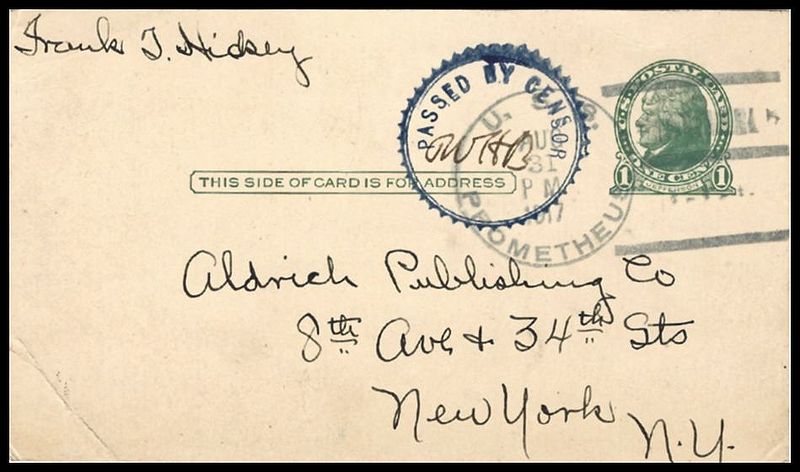 Frank T. Hidsey
PASSED BY CENSOR
OWHB
U. S. S. PROMETHEUS
AUG
31
P M
1917
U.S. POSTAL CARD
1 JEFFERSON 1
ONE CENT
THIS SIDE OF CARD IS FOR ADDRESS
Aldrich Publishing Co
8th Ave + 34th Sts
New York
N.Y.